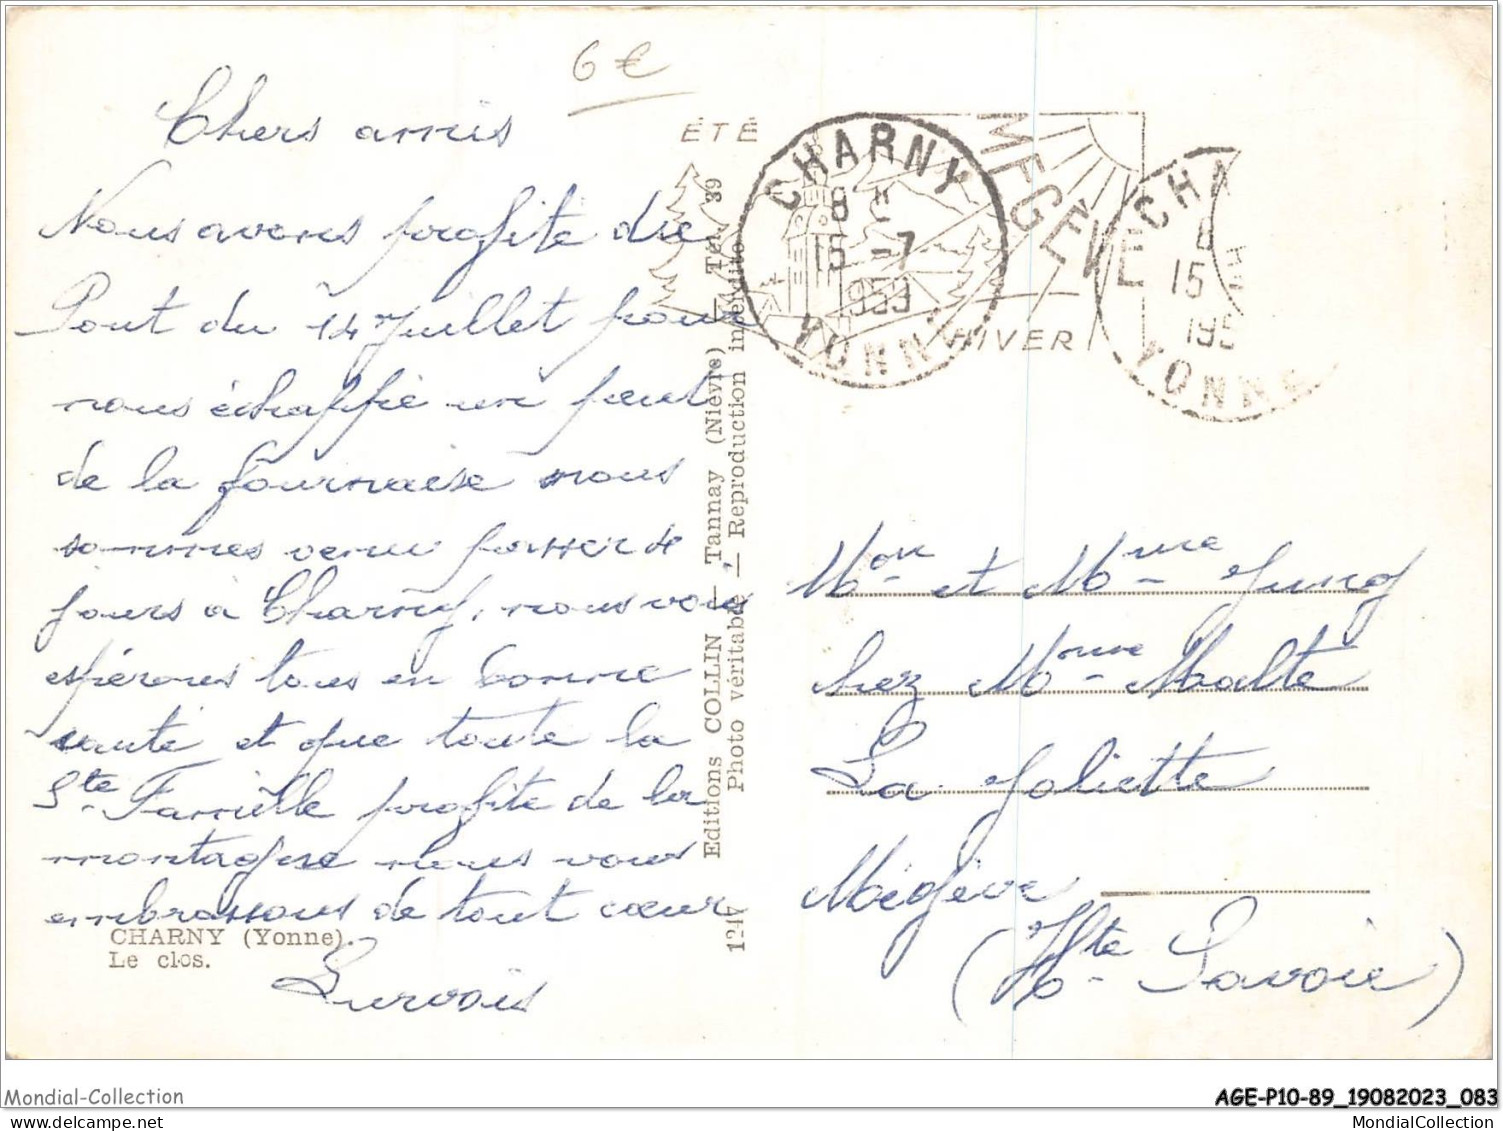 6 €
Chers amis
Nous avons profité du
Pont du 14 Juillet pour
nous échappé un peut
de la fournaise nous
sommes venu passer de
jours à Charny, nous vous
espérons tous en bonne
santé et que toute la
Ste Famille profite de la
montagne nous vous
embrassons de tout cœur
CHARNY (Yonne).
Le clos.
Editions COLLIN — Tannay (Nièvre) — Tél. 39
1247 Photo véritable — Reproduction interdite
ÉTÉ
MEGÈVE
HIVER
CHARNY
8 H
15 -7
1959
YONNE
CHA
15
195
YONNE
Mon et Mme Jung
chez Mme Malte
La Joliette
Mégève
(Hte Savoie)
Mondial-Collection
AGE-P10-89_19082023_083
mondial-collection.delcampe.net
MondialCollection